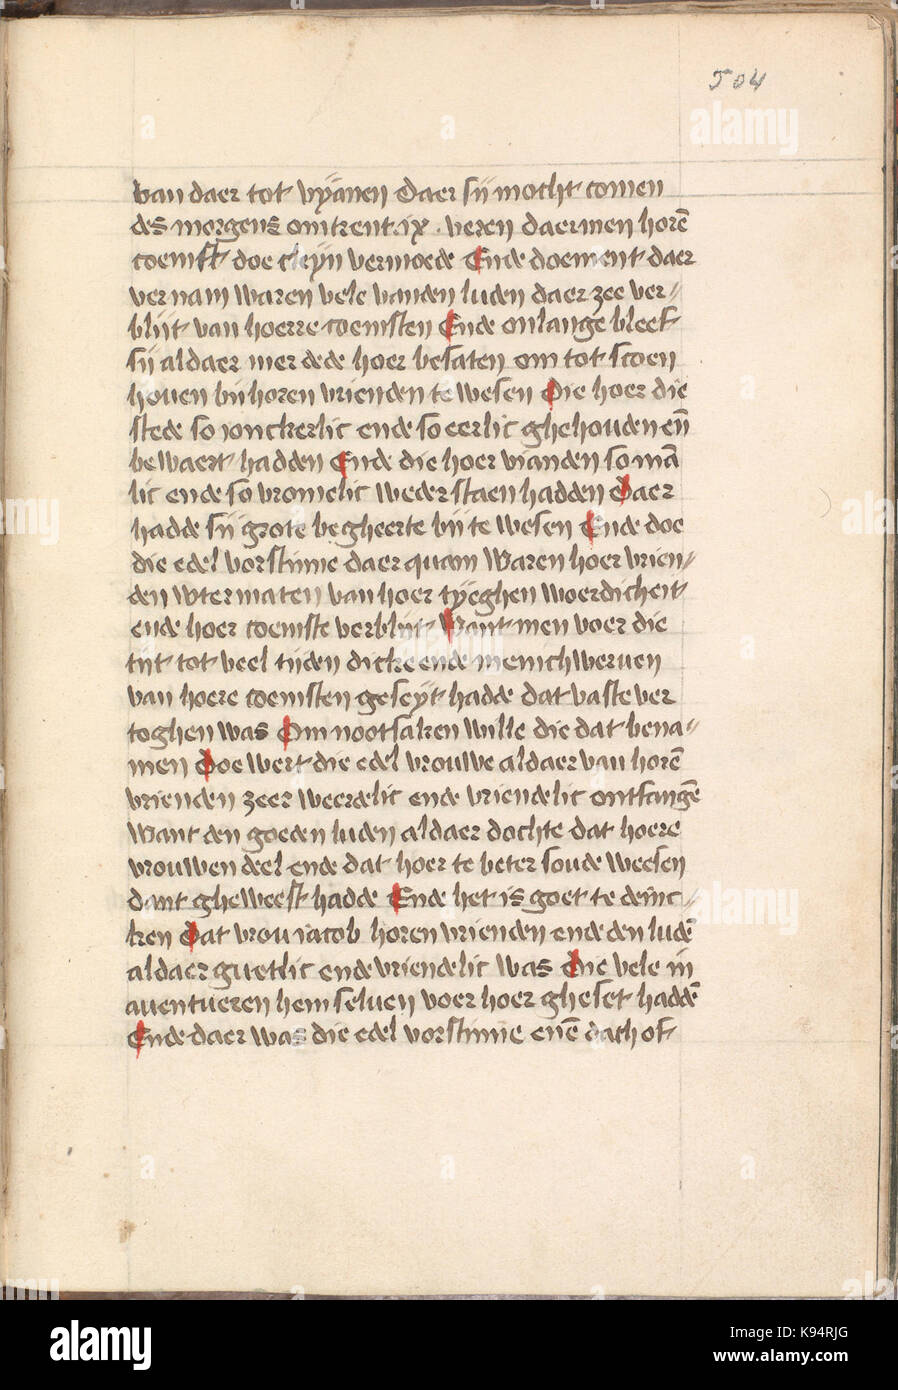 504
van daer tot vyanen Daer sij mocht comen
des morgens omtrent .ix. vren daermen horē
coemst doe cleyn vermoede Ende doement daer
vernam waren vele vanden luden daer zee ver-
blijt van hoerre coemsten Ende onlange bleef
sij aldaer mer dede hoer besaten om tot scoen
houen bij horen vrienden te wesen Die hoer die
stede so ionckerlic ende so eerlic ghehouden eñ
bewaert hadden Ende die hoer vianden so mā
lic ende so vromelic wederstaen hadden Daer
hadde sij grote begheerte bij te wesen Ende doe
die edel vorstinne daer quam Waren hoer vrien-
den wtermaten van hoer tyeghen woerdicheit
ende hoer coemste verblijt Want men voer die
tijt tot veel tijden dicke ende menichweruen
van hoere coemsten geseyt hadde dat vaste ver
toghen was Om nootsaken wille die dat bena-
men Doe wert die edel vrouwe aldaer van horē
vrienden zeer weerdelic ende vriendelic ontfangē
Want den goeden luden aldaer dochte dat hoere
vrouwen deel ende dat hoer te beter soude weesen
dant gheweest hadde Ende het is goet te deinc-
ken Dat vrou iacob horen vrienden ende den ludē
aldaer guetlic ende vriendelic was Die vele in
auentueren hem seluen voer hoer gheset haddē
Ende daer was die edel vorstinne enē dach of
alamy
alamy
K94RJG
www.alamy.com